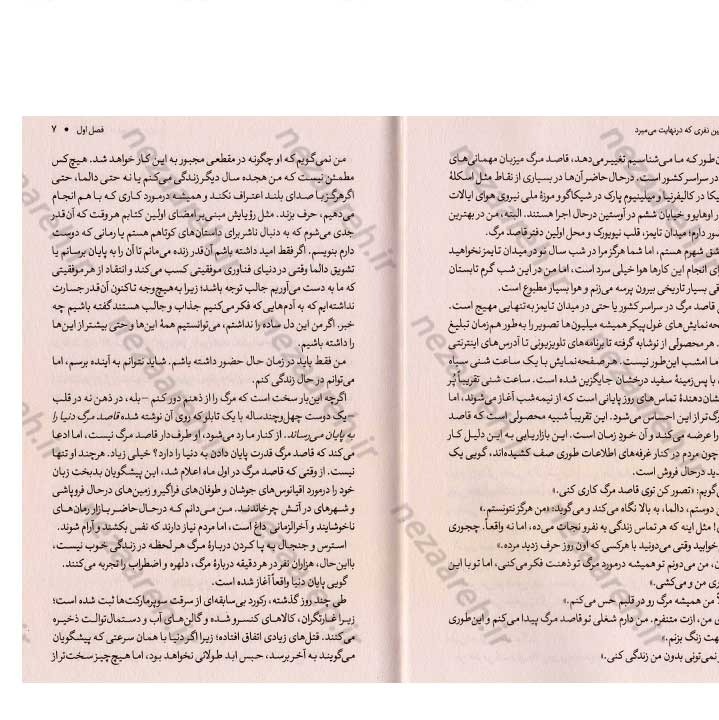 ین نفری که درنهایت می‌میرد
ن‌طور که ما می‌شناسیم تغییر می‌دهد، قاصد مرگ میزبان مهمانی‌های
در سراسر کشور است. درحال حاضر آن‌ها در بسیاری از نقاط مثل اسکلهٔ
یکا در کالیفرنیا و میلینیوم پارک در شیکاگو و موزهٔ ملی نیروی هوای ایالات
ر اوهایو و خیابان ششم در آوستین درحال اجرا هستند. البته، من در بهترین
ور دارم؛ میدان تایمز، قلب نیویورک و محل اولین دفتر قاصد مرگ.
شق شهرم هستم، اما شما هرگز مرا در شب سال نو در میدان تایمز نخواهید
رای انجام این کارها هوا خیلی سرد است، اما من در این شب گرم تابستان
قی بسیار تاریخی بیرون پرسه می‌زنم و هوا بسیار مطبوع است.
ی قاصد مرگ در سراسر کشور یا حتی در میدان تایمز به‌تنهایی مهیج است.
حه‌نمایش‌های غول‌پیکر همیشه میلیون‌ها تصویر را به‌طور هم‌زمان تبلیغ
. هر محصولی از نوشابه گرفته تا برنامه‌های تلویزیونی تا آدرس‌های اینترنتی
ما امشب این‌طور نیست. هر صفحه‌نمایش با یک ساعت شنی سیاه
ل با پس‌زمینهٔ سفید درخشان جایگزین شده است. ساعت شنی تقریباً پُر
شان‌دهندهٔ تماس‌های روز پایانی است که از نیمه‌شب آغاز می‌شوند، اما
رگ‌تر از این احساس می‌شود. این تقریباً شبیه محصولی است که قاصد
را عرضه می‌کند و آن خودِ زمان است. این بازاریابی به این دلیل کار
چون مردم در کنار غرفه‌های اطلاعات طوری صف کشیده‌اند، گویی یک
دید درحال فروش است.
‌گویم: «تصور کن توی قاصد مرگ کاری کنی.»
ن دوستم، دالما، به بالا نگاه می‌کند و می‌گوید: «من هرگز نتونستم.»
! مثل اینه که هر تماس زندگی یه نفرو نجات می‌ده، اما نه واقعاً. چجوری
خوابید وقتی می‌دونید با هرکسی که اون روز حرف زدید مرده.»
ن، من می‌دونم تو همیشه درمورد مرگ تو ذهنت فکر می‌کنی، اما تو با این
ری من و می‌کشی.»
ً من همیشه مرگ رو در قلبم حس می‌کنم.»
ی من، ازت متنفرم. من دارم شغلی تو قاصد مرگ پیدا می‌کنم و این‌طوری
هت زنگ بزنم.»
نمی‌تونی بدون من زندگی کنی.»
فصل اول • ۷
من نمی‌گویم که او چگونه در مقطعی مجبور به این کار خواهد شد. هیچ‌کس
مطمئن نیست که من هجده سال دیگر زندگی می‌کنم یا نه حتی دالما، حتی
اگر هرگز با صدای بلند اعتراف نکند و همیشه درمورد کاری که با هم انجام
می‌دهیم، حرف بزند. مثل رؤیایش مبنی بر امضای اولین کتابم هروقت که آن‌قدر
جدی می‌شوم که به دنبال ناشر برای داستان‌های کوتاهم هستم یا رمانی که دوست
دارم بنویسم. اگر فقط امید داشته باشم آن‌قدر زنده می‌مانم تا آن را به پایان برسانم یا
تشویق دالما وقتی در دنیای فناوری موفقیتی کسب می‌کند و انتقاد از هر موفقیتی
که ما به دست می‌آوریم جالب توجه باشد؛ زیرا به هیچ‌وجه تاکنون آن‌قدر جسارت
نداشته‌ایم که به آدم‌هایی که فکر می‌کنیم جذاب و جالب هستند گفته باشیم چه
خبر. اگر من این دل ساده را نداشتم، می‌توانستیم همهٔ این‌ها و حتی بیشتر از این‌ها
را داشته باشیم.
من فقط باید در زمان حال حضور داشته باشم. شاید نتوانم به آینده برسم، اما
می‌توانم در حال زندگی کنم.
اگرچه این‌بار سخت است که مرگ را از ذهنم دور کنم – بله، در ذهن نه در قلب
– یک دوست چهل‌وچندساله با یک تابلو که روی آن نوشته شده قاصد مرگ دنیا را
به پایان می‌رساند. از کنار ما رد می‌شود، او طرف‌دار قاصد مرگ نیست، اما ادعا
می‌کند که قاصد مرگ قدرت پایان دادن به دنیا را دارد؟ خیلی زیاد. هرچند او تنها
نیست. از وقتی که قاصد مرگ در اول ماه اعلام شد، این پیشگویان بدبخت زبان
خود را درمورد اقیانوس‌های جوشان و طوفان‌های فراگیر و زمین‌های درحال فروپاشی
و شهرهای در آتش چرخانده‌اند. من می‌دانم که درحال حاضر بازار رمان‌های
ناخوشایند و آخرالزمانی داغ است، اما مردم نیاز دارند که نفس بکشند و آرام شوند.
استرس و جنجال به پا کردن دربارهٔ مرگ هر لحظه در زندگی خوب نیست،
بااین‌حال، هزاران نفر در هر دقیقه دربارهٔ مرگ، دلهره و اضطراب را تجربه می‌کنند.
گویی پایان دنیا واقعاً آغاز شده است.
طی چند روز گذشته، رکورد بی‌سابقه‌ای از سرقت سوپرمارکت‌ها ثبت شده است؛
زیرا غارتگران، کالاهای کنسرو شده و گالن‌های آب و دستمال‌توالت ذخیره
می‌کنند. قتل‌های زیادی اتفاق افتاده؛ زیرا اگر دنیا با همان سرعتی که پیشگویان
می‌گویند به آخر برسد، حبس ابد طولانی نخواهد بود، اما هیچ‌چیز سخت‌تر از
nezaareh.ir